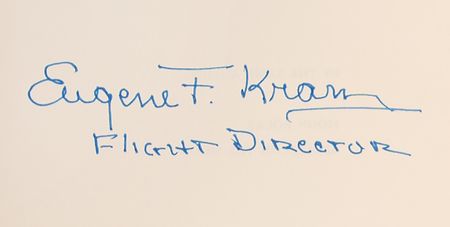 Eugene F. Kranz
Flight Director